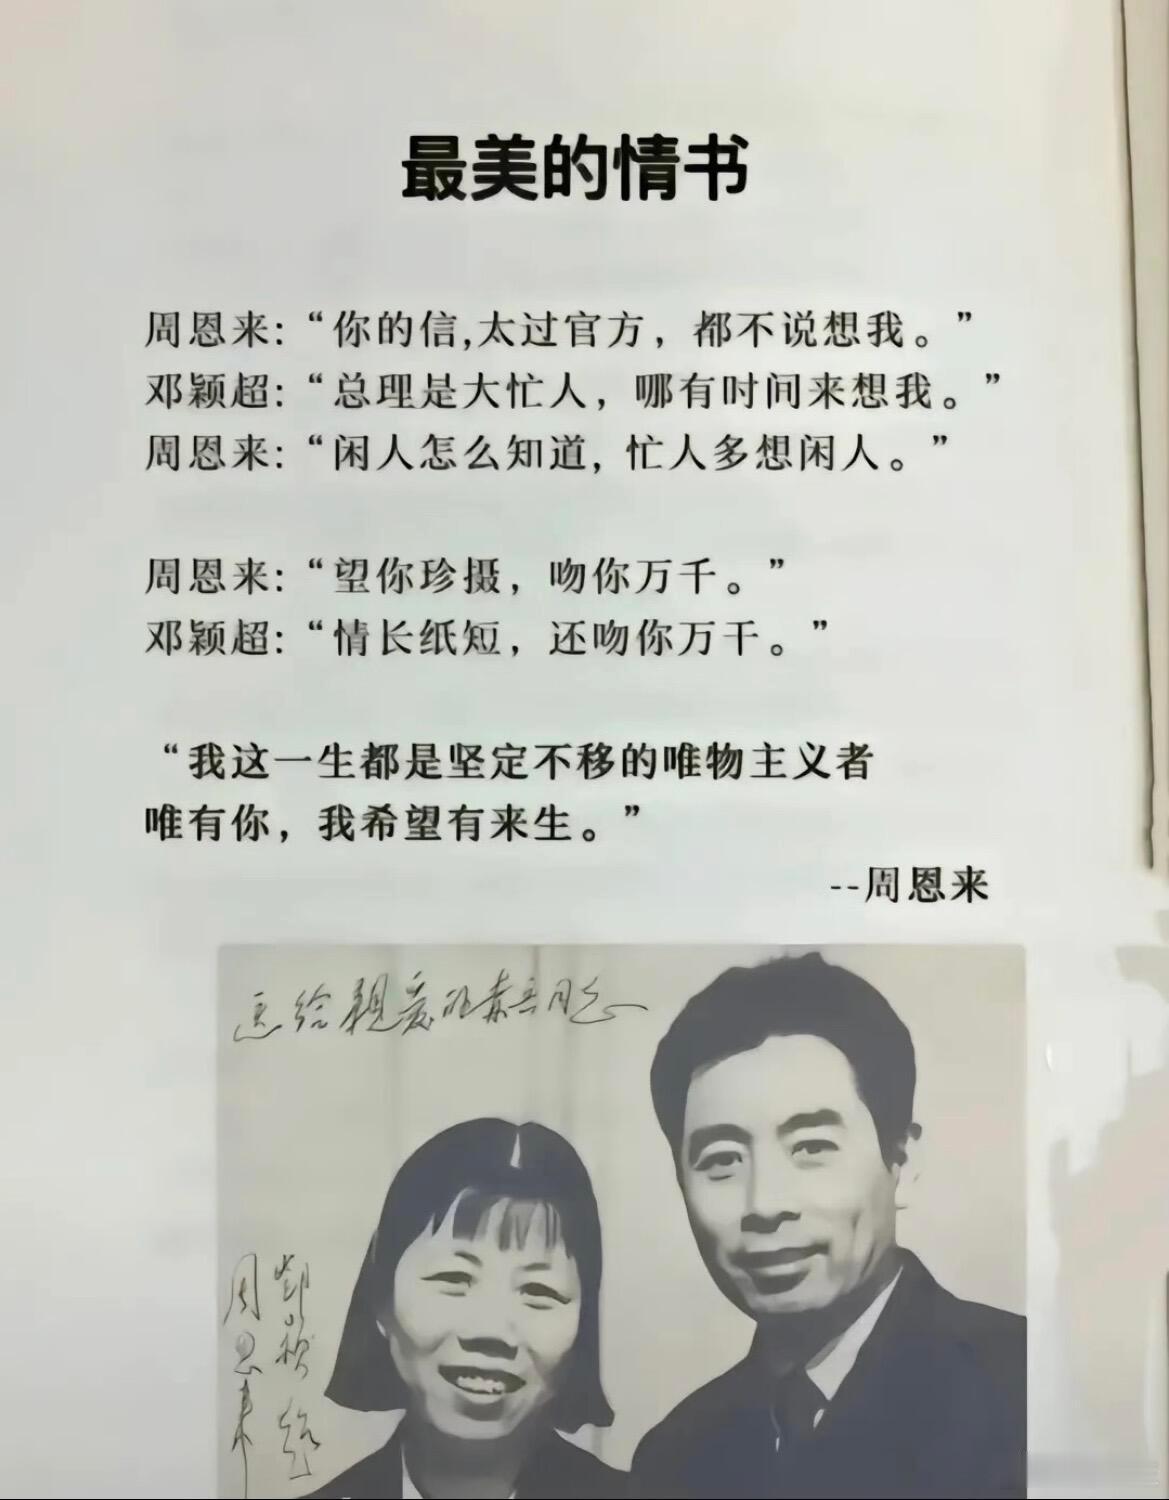 最美的情书
周恩来：“你的信,太过官方，都不说想我。”
邓颖超：“总理是大忙人，哪有时间来想我。”
周恩来：“闲人怎么知道，忙人多想闲人。”
周恩来：“望你珍摄，吻你万千。”
邓颖超：“情长纸短，还吻你万千。”
“我这一生都是坚定不移的唯物主义者
唯有你，我希望有来生。”
--周恩来
给親爱
同志
周恩来
鄧穎超